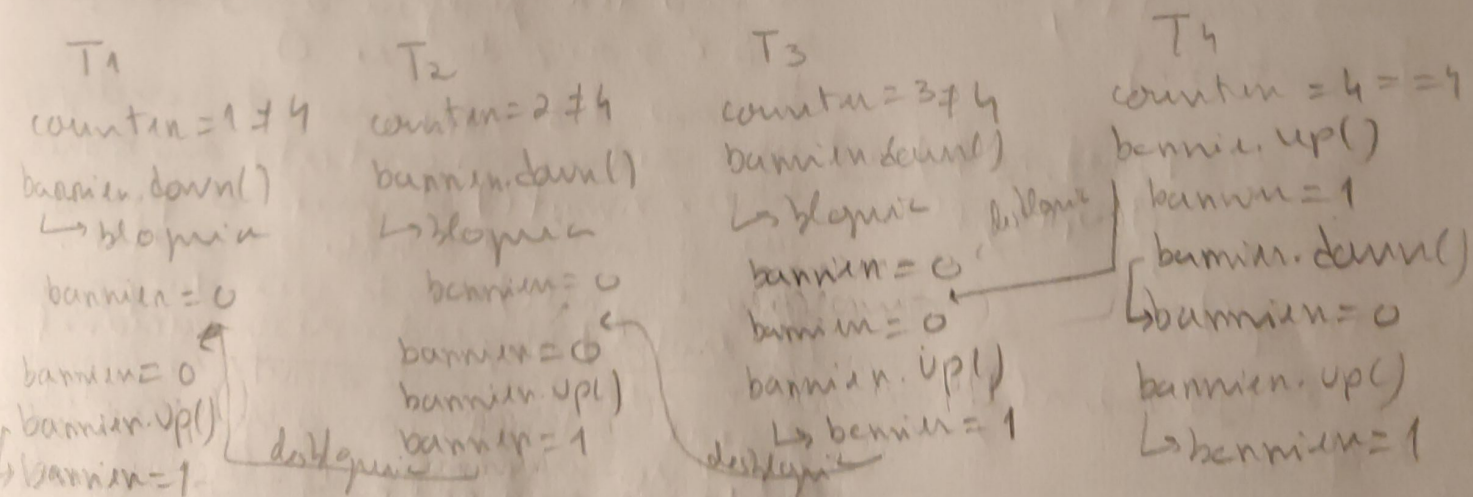 T1
counter = 1 ≠ 4
barrier.down()
↳ bloquie
barrier = 0
barrier = 0
barrier.up()
↳ barrier = 1
T2
counter = 2 ≠ 4
barrier.down()
↳ bloquie
barrier = 0
barrier = 0
barrier.up()
barrier = 1
desbloquie
T3
counter = 3 ≠ 4
barrier.down()
↳ bloquie
barrier = 0
barrier = 0
barrier.up()
↳ barrier = 1
desbloquie
T4
counter = 4 == 4
barrier.up()
barrier = 1
barrier.down()
↳ barrier = 0
barrier.up()
↳ barrier = 1